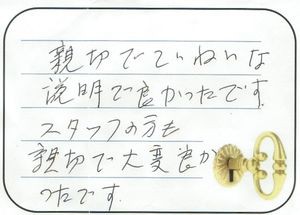 親切でていねいな
説明で良かったです.
スタッフの方も
親切で大変良か
ったです.